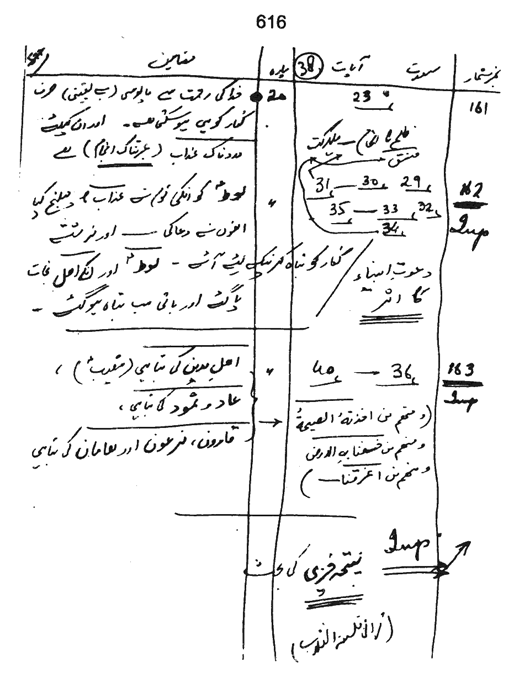 616
نمبر شمار سورت آیات 38 پارہ مضامین
161 23 20 خدا کی رحمت سے مایوسی (بے یقینی) صرف
کفار کو ہی ہو سکتی ہے۔ اور ان کیلئے
دردناک عذاب (عبرتناک انجام) ہے
162 29 30 — 31 " لوط کو انکی قوم نے عذاب کا چیلنج کیا
Imp 32 33 — 35 انھوں نے دعا کی — اور فرشتے
34
کفار کو تباہ کرنے کیلئے آئے — لوط اور انکے اہل نجات
پا گئے اور باقی سب تباہ ہو گئے —
دعوت انبیاء
کا اثر
163 36 → 40 " اہل مدین کی تباہی (شعیب)،
Imp عاد و ثمود کی تباہی،
قارون، فرعون اور ہامان کی تباہی
(ومنھم من اخذتہ الصیحۃ
ومنھم من خسفنا بہ الارض
ومنھم من اغرقنا —)
Imp کی بحث